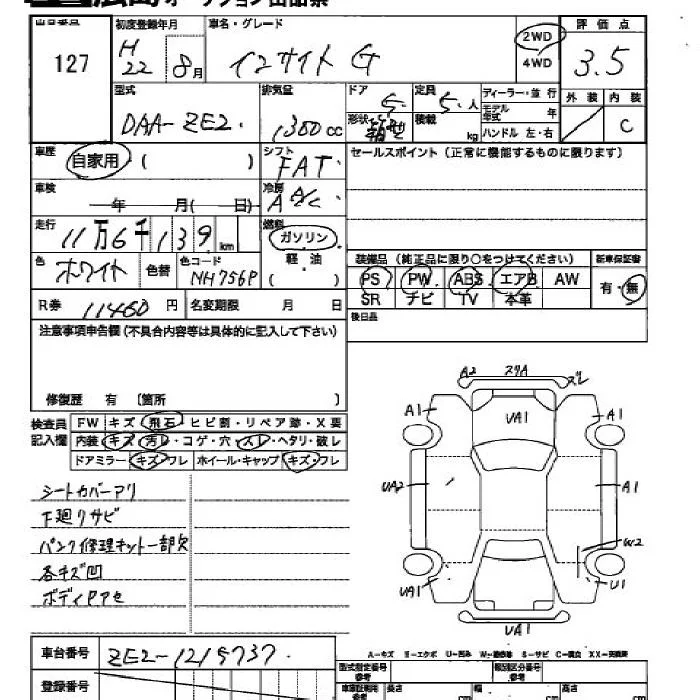 広島オークション出品票
出品番号 初度登録年月 車名・グレード 評価点
127 H22 8月 インサイト G 2WD 4WD 3.5
型式 排気量 ドア 定員 ディーラー・並行 外装 内装
DAA-ZE2. 1300cc 5 5人 モデル年式 年
形状 箱型 積載 kg ハンドル 左・右 C
車歴 シフト セールスポイント(正常に機能するものに限ります)
自家用 ( ) FAT
車検 冷房
年 月( 日) A A/C
走行 燃料
11万6千139km ガソリン
色 色コード 軽油 装備品(純正品に限り○をつけてください) 新車保証書
ホワイト 色替 NH756P ( ) PS PW ABS エアB AW 有・無
SR ナビ TV 本革
R券 11460円 名変期限 月 日 後日品
注意事項申告欄(不具合内容等は具体的に記入して下さい)
修復歴 有 〔箇所 〕
検査員 FW キズ・飛石・ヒビ割・リペア跡・X要
記入欄 内装 キズ・汚レ・コゲ・穴・スレ・ヘタリ・破レ
ドアミラー キズ・ワレ ホイール・キャップ キズ・ワレ
シートカバーアリ
下廻りサビ
パンク修理キット一部欠
各キズ凹
ボディアセ
A2 スリA ズレ
A1 UA1 A1
UA2 A1
W2
UA1 U1
UA1
A-キズ U-凹み S-サビ
車台番号 ZE2-1215737.
登録番号
型式指定番号 類別区分番号
長さ cm 幅 cm 高さ cm